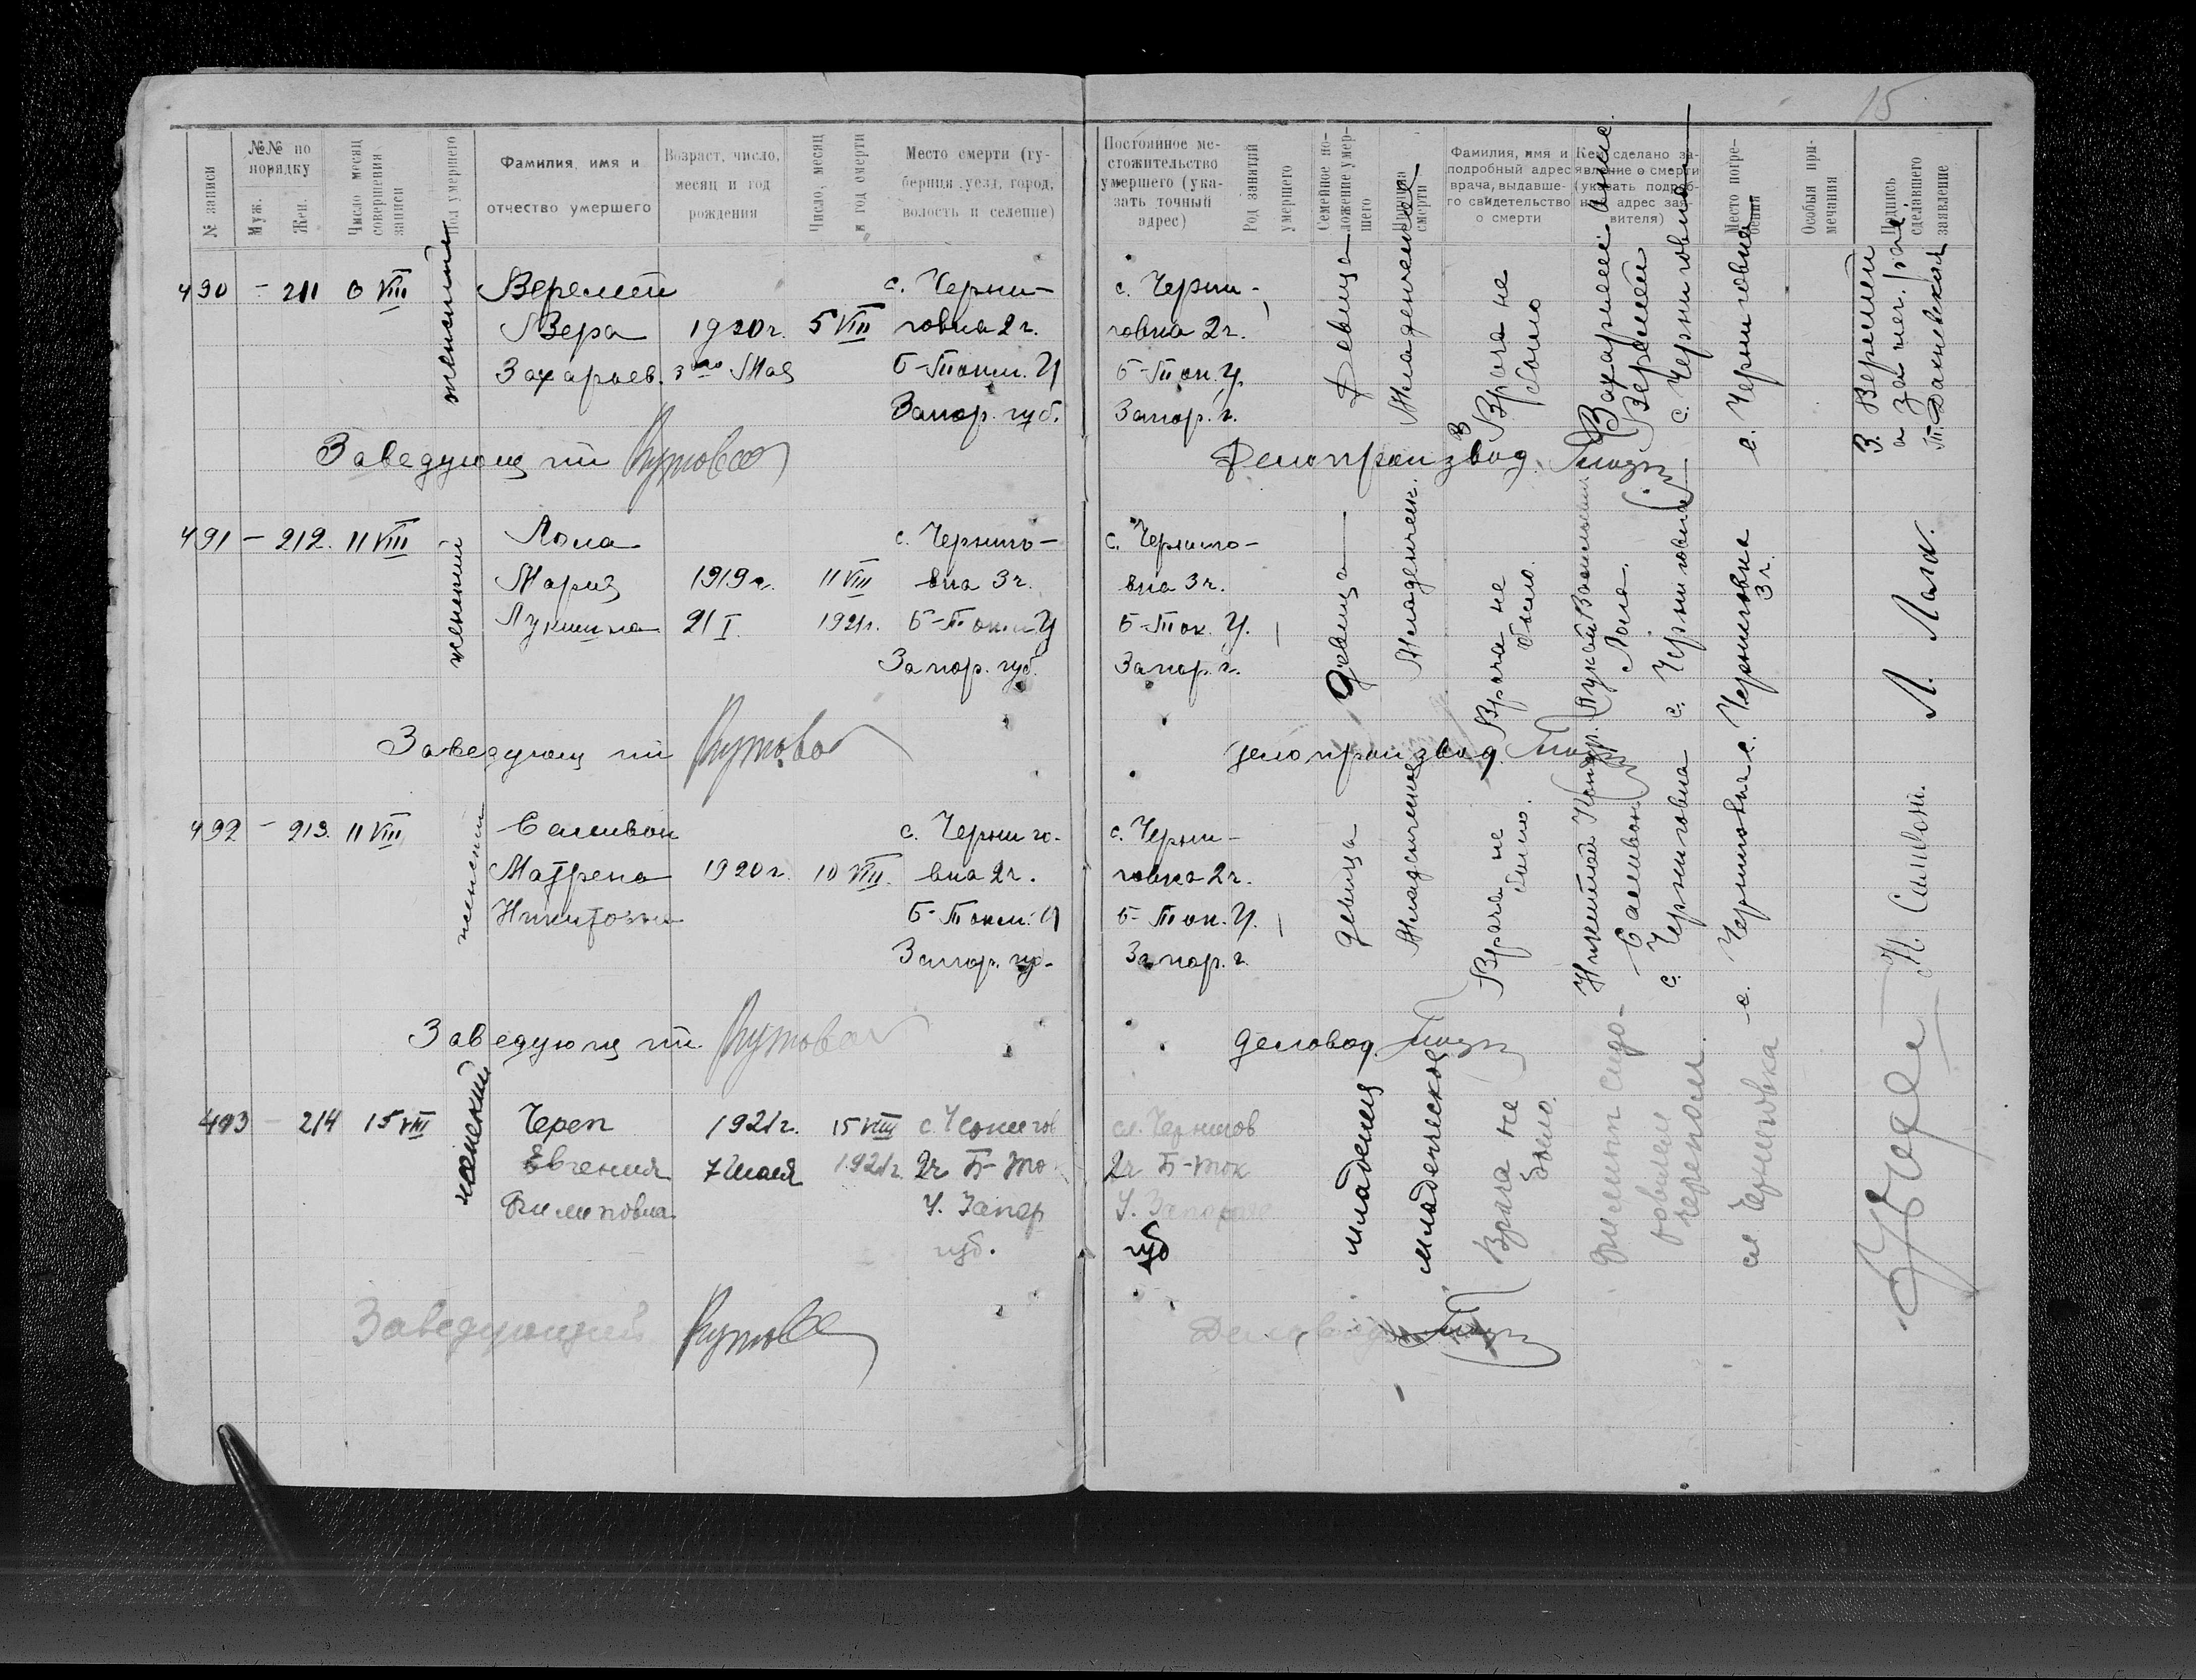 15
№ записи
№№ по порядку
Муж.
Жен.
Число месяц совершения записи
Пол умершего
Фамилия, имя и отчество умершего
Возраст, число, месяц и год рождения
Число, месяц и год смерти
Место смерти (губерния, уезд, город, волость и селение)
Постоянное местожительство умершего (указать точный адрес)
Род занятий умершего
Семейное положение умершего
Причина смерти
Фамилия, имя и подробный адрес врача, выдавшего свидетельство о смерти
Кем сделано заявление о смерти (указать подробный адрес заявителя)
Место погребения
Особыя примечания
Подпись сделавшего заявление
490 – 211 6 VIII женский
Веремей
Вера
Захарьев.
1920 г.
3го Мая
5 VIII
с. Черни-
говка 2 ч.
Б-Токм. У
Запор. губ.
с. Черни-
говка 2 ч.
Б-Ток. У.
Запор. г.
Девица
Младенческ
Врача не
было
Веремей
с. Черниговка
с. Черниговка
З. Веремей
а за нег.
Заведующий
Делопроизвод.
491 – 212. 11 VIII женский
Лола
Мария
Лукишна
1919 г.
21 I
11 VIII
1921 г.
с. Черниго-
вка 3 ч.
Б-Токм У
Запор. губ.
с. Черниго-
вка 3 ч.
Б-Ток. У.
Запор. г.
девица
Младенческ.
Врача не
было.
Лола.
с. Черниговка
с. Черниговка
3 ч.
Заведующий
делопроизвод.
492 – 213. 11 VIII женский
Саливон
Матрена
Никитовна
1920 г.
10 VIII.
с. Черниго-
вка 2 ч.
Б-Токм. У
Запор. гу-
с. Черни-
говка 2 ч.
Б-Ток. У.
Запор. г.
девица
Младенческое
Врача не
было.
Никитой
Саливон
с. Черниговка
с. Черниговка
Н. Саливон.
Заведующий
деловод.
493 – 214 15 VIII женский
Череп
Евгения
Филиповна
1921 г.
7 мая
15 VIII
1921 г.
с. Чернигов
2 ч Б-То
У. Запор
губ.
сл. Чернигов
2 ч Б-Ток
У. Запорож
губ
младенец
младенческое
Врача не
было.
Филипп Сидо-
ровичем
Черепом.
сл. Черниговка
Заведующий
Деловод